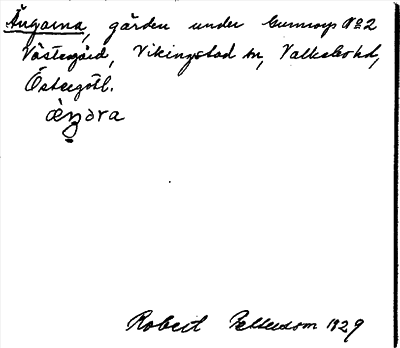 Ängarna, gården under Gunnorp No 2
Västergård, Vikingstad sn, Valkebo hd,
Östergötl.
æŋara
Robert Pettersson 1929